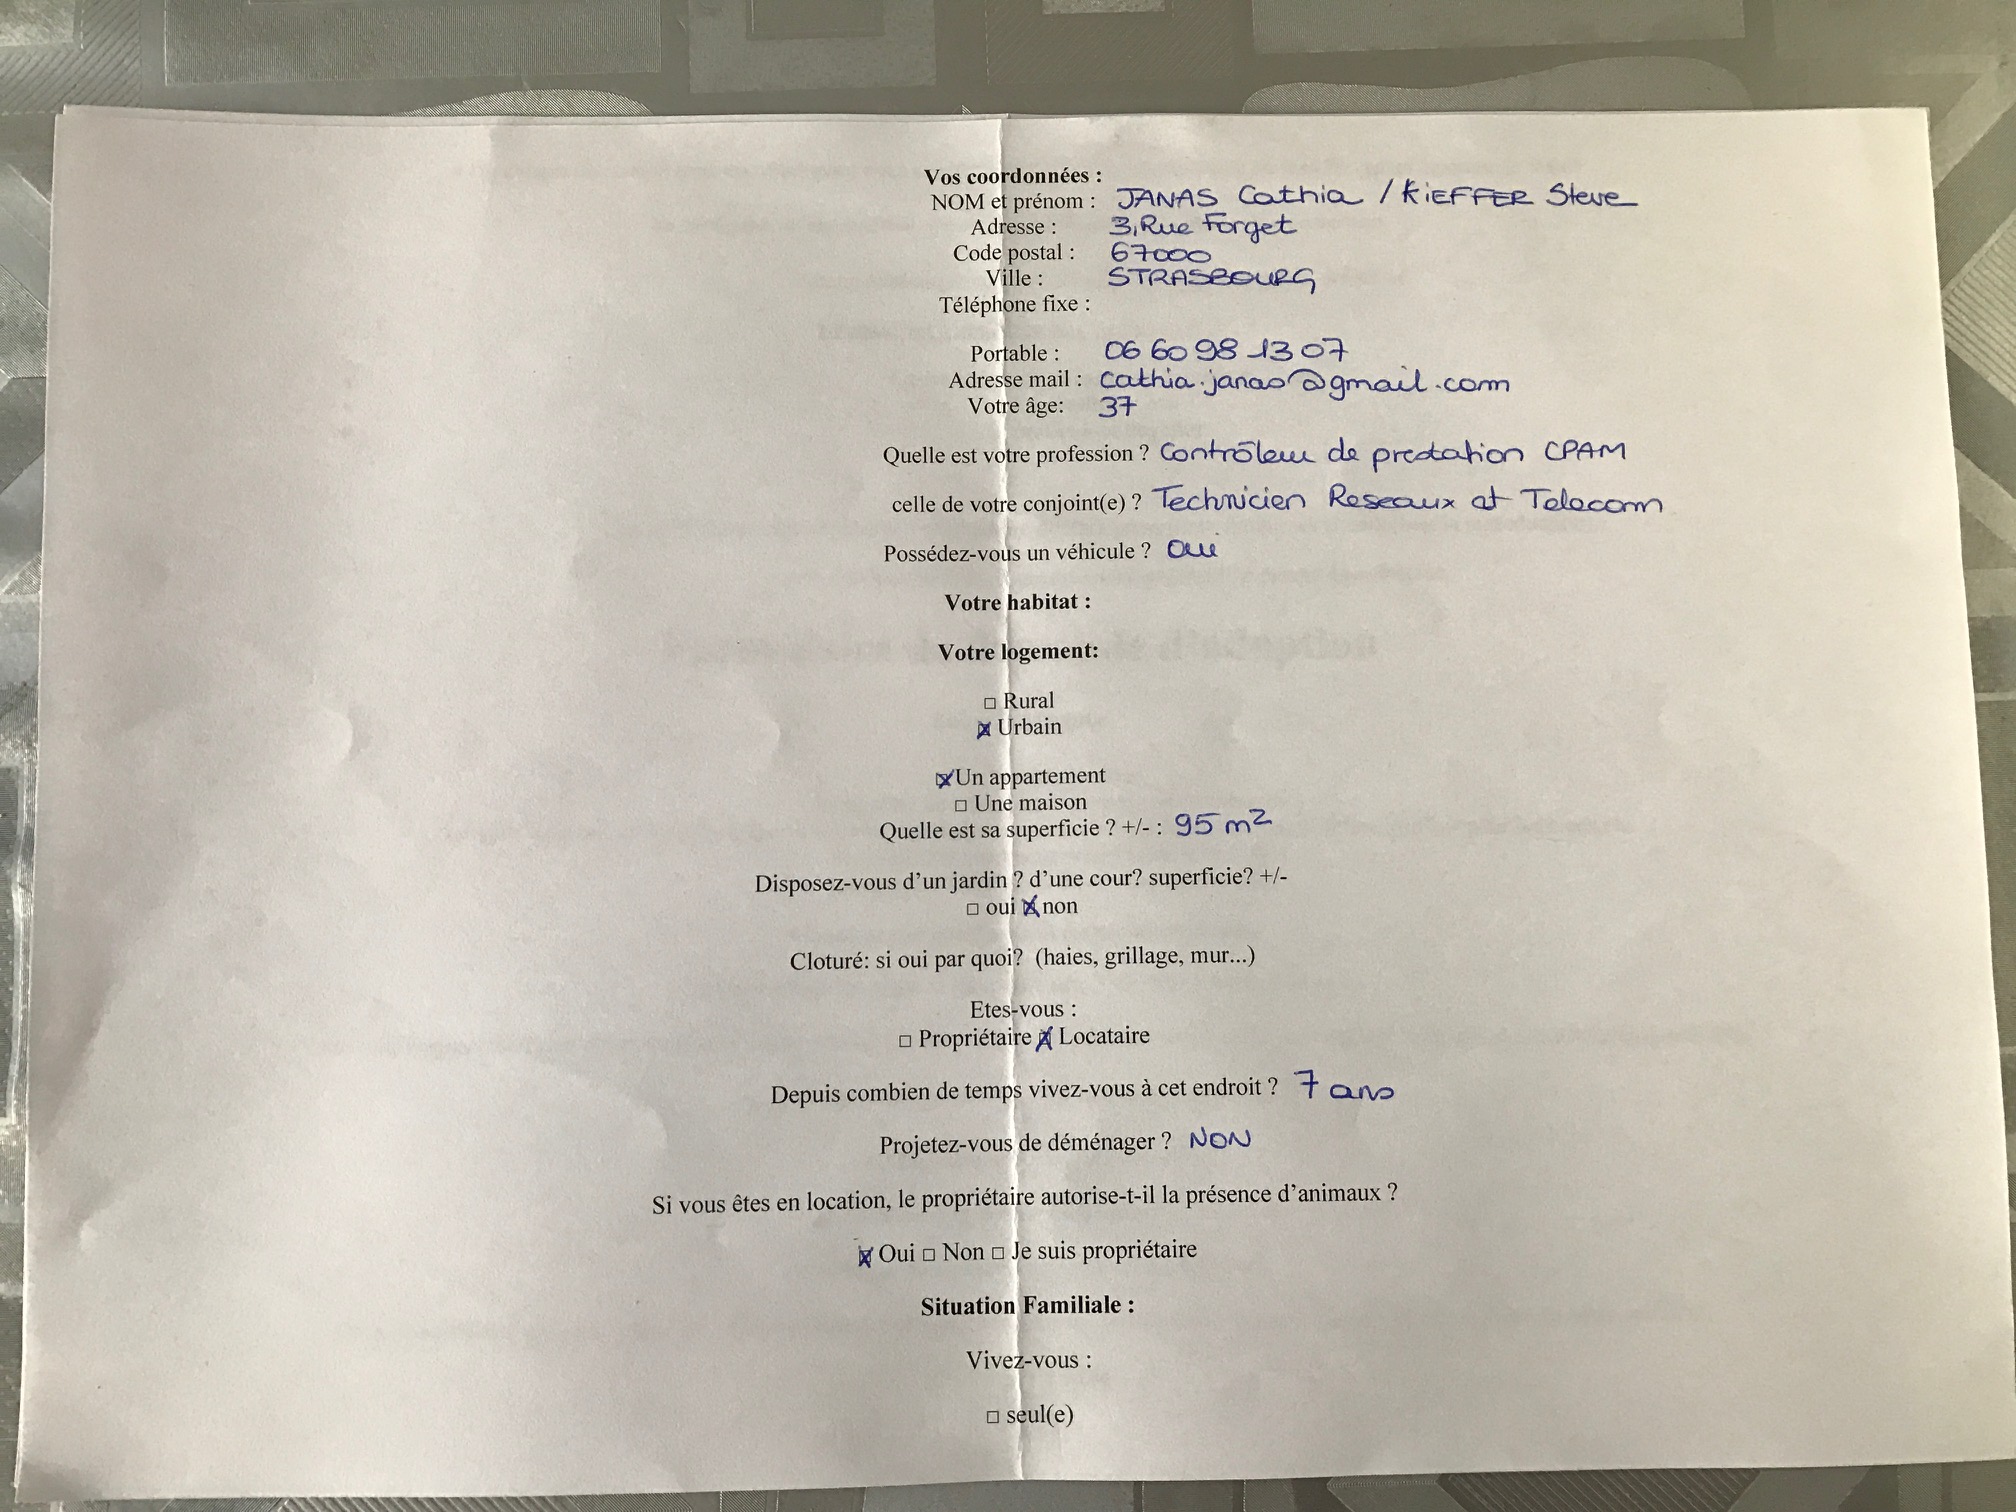 Vos coordonnées :
NOM et prénom : JANAS Cathia / KIEFFER Steve
Adresse : 3, Rue Forget
Code postal : 67000
Ville : STRASBOURG
Téléphone fixe :
Portable : 06 60 98 13 07
Adresse mail : cathia.janas@gmail.com
Votre âge: 37
Quelle est votre profession ? Contrôleur de prestation CPAM
celle de votre conjoint(e) ? Technicien Reseaux et Telecom
Possédez-vous un véhicule ? oui
Votre habitat :
Votre logement:
□ Rural
☒ Urbain
☒ Un appartement
□ Une maison
Quelle est sa superficie ? +/- : 95 m²
Disposez-vous d'un jardin ? d'une cour? superficie? +/-
□ oui ☒ non
Cloturé: si oui par quoi? (haies, grillage, mur...)
Etes-vous :
□ Propriétaire ☒ Locataire
Depuis combien de temps vivez-vous à cet endroit ? 7 ans
Projetez-vous de déménager ? NON
Si vous êtes en location, le propriétaire autorise-t-il la présence d'animaux ?
☒ Oui □ Non □ Je suis propriétaire
Situation Familiale :
Vivez-vous :
□ seul(e)